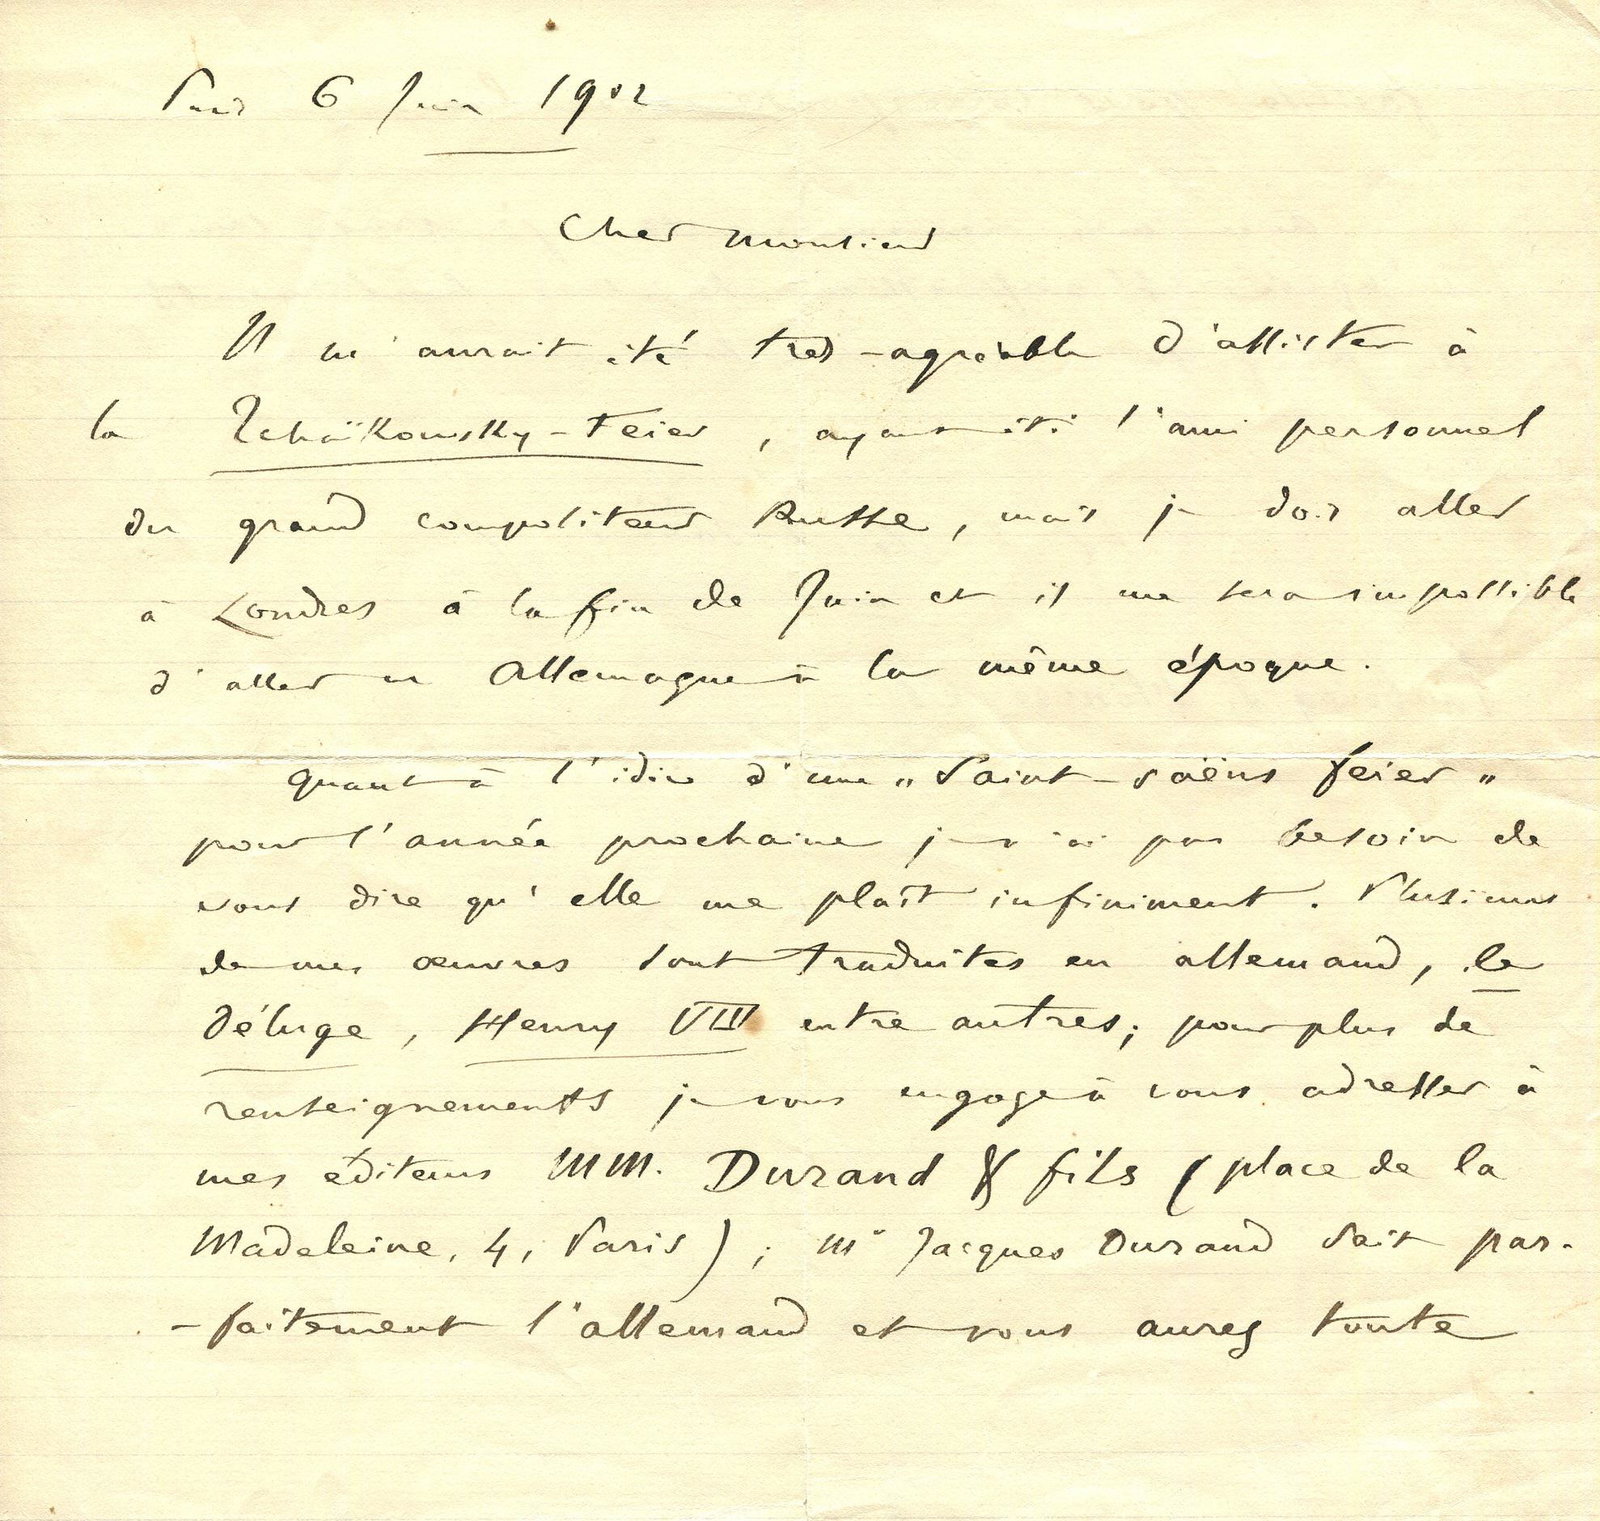 Paris 6 Juin 1902
Cher Monsieur
Il m'aurait été très-agréable d'assister à
la Tchaïkowsky-Feier, ayant été l'ami personnel
du grand compositeur Russe, mais je dois aller
à Londres à la fin de Juin et il me sera impossible
d'aller en Allemagne à la même époque.
Quant à l'idée d'une „Saint-Saëns feier"
pour l'année prochaine je n'ai pas besoin de
vous dire qu'elle me plaît infiniment. Plusieurs
de mes œuvres sont traduites en allemand, le
Déluge, Henry VIII entre autres; pour plus de
renseignements je vous engage à vous adresser à
mes éditeurs MM. Durand & fils (place de la
Madeleine, 4, Paris); Mr Jacques Durand sait par-
-faitement l'allemand et vous aurez toute